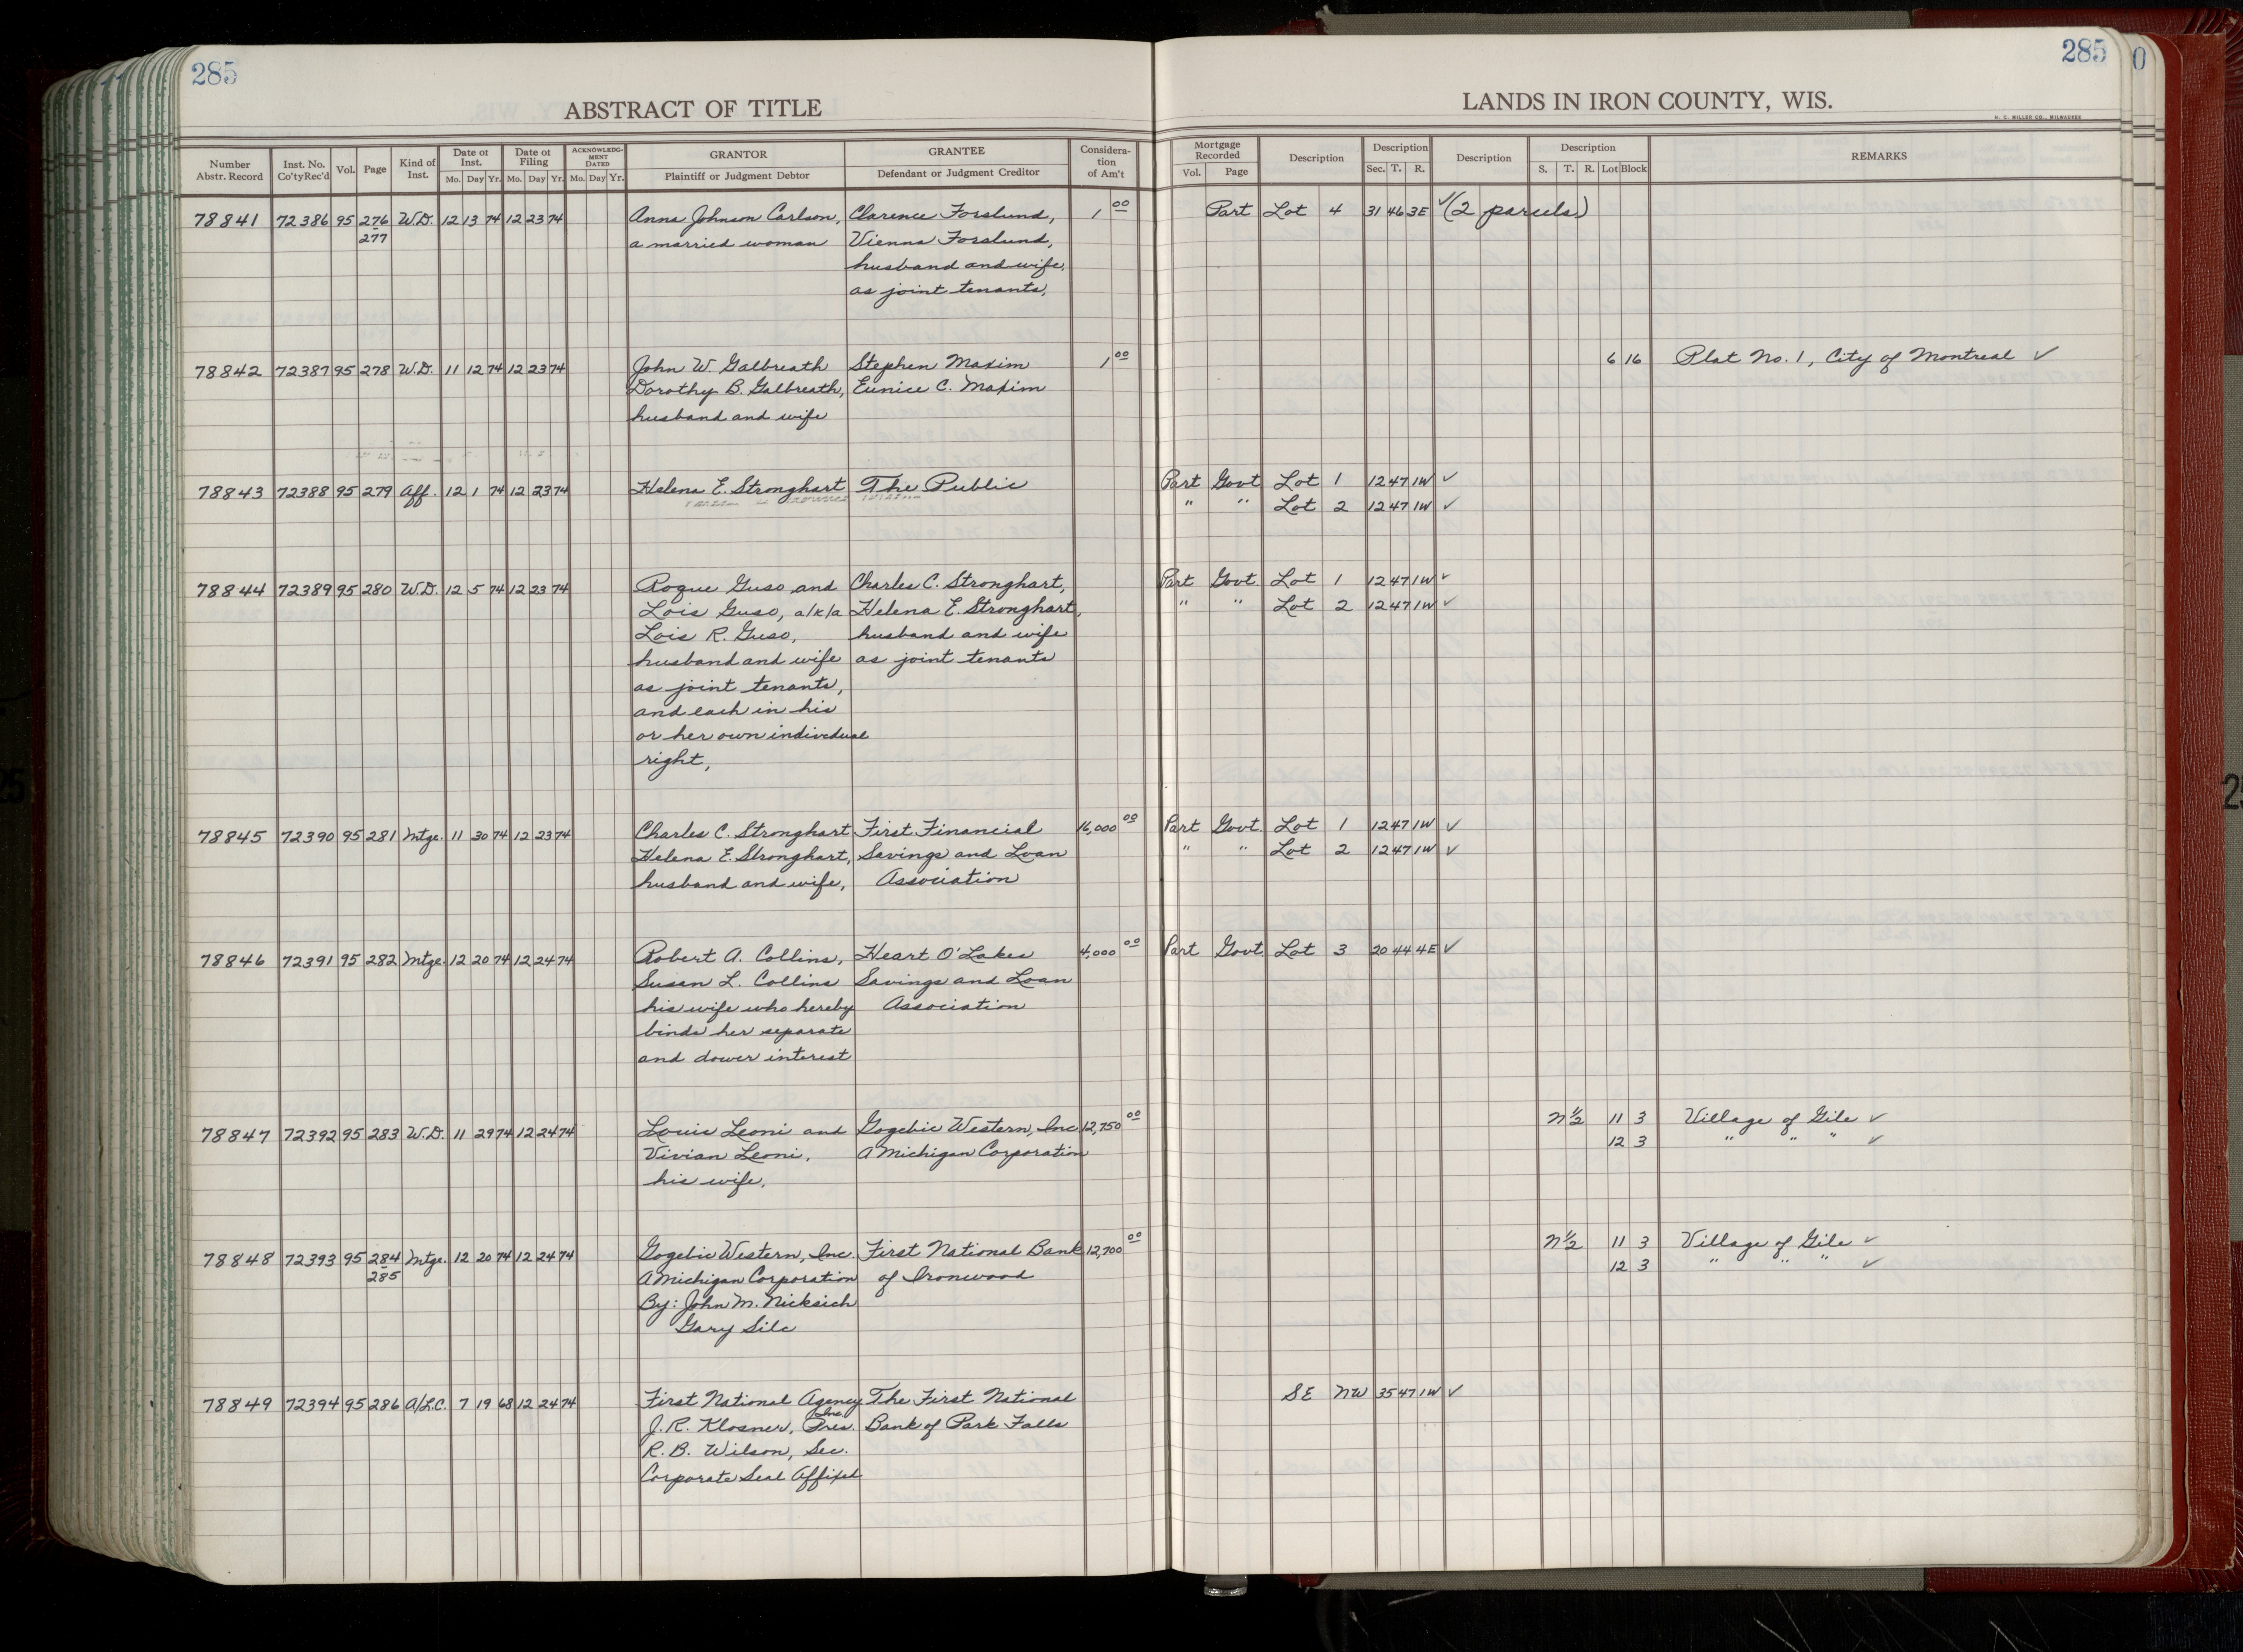 285
ABSTRACT OF TITLE
Number Abstr. Record | Inst. No. Co'ty Rec'd | Vol. | Page | Kind of Inst. | Date of Inst. Mo. Day Yr. | Date of Filing Mo. Day Yr. | ACKNOWLEDGMENT DATED Mo. Day Yr. | GRANTOR Plaintiff or Judgment Debtor | GRANTEE Defendant or Judgment Creditor | Consideration of Am't
285
0
LANDS IN IRON COUNTY, WIS.
H. C. MILLER CO., MILWAUKEE
Mortgage Recorded Vol. Page | Description | Description Sec. T. R. | Description | Description S. T. R. Lot Block | REMARKS
78841 72386 95 276 W.D. 12 13 74 12 23 74 Anna Johnson Carlson, Clarence Forslund, 1 00 Part Lot 4 31 46 3E ✓(2 parcels)
277 a married woman Vienna Forslund,
husband and wife,
as joint tenants,
78842 72387 95 278 W.D. 11 12 74 12 23 74 John W. Galbreath Stephen Maxim 1 00 6 16 Plat No. 1, City of Montreal ✓
Dorothy B. Galbreath, Eunice C. Maxim
husband and wife
78843 72388 95 279 Aff. 12 1 74 12 23 74 Helena E. Stronghart The Public Part Govt Lot 1 12 47 1W ✓
" " Lot 2 12 47 1W ✓
78844 72389 95 280 W.D. 12 5 74 12 23 74 Roque Guso and Charles C. Stronghart, Part Govt. Lot 1 12 47 1W ✓
Lois Guso, a/k/a Helena E. Stronghart, " " Lot 2 12 47 1W ✓
Lois R. Guso, husband and wife
husband and wife as joint tenants
as joint tenants,
and each in his
or her own individual
right,
78845 72390 95 281 Mtge. 11 30 74 12 23 74 Charles C. Stronghart First Financial 16,000 00 Part Govt. Lot 1 12 47 1W ✓
Helena E. Stronghart, Savings and Loan " " Lot 2 12 47 1W ✓
husband and wife, Association
78846 72391 95 282 Mtge. 12 20 74 12 24 74 Robert A. Collins, Heart O'Lakes 4,000 00 Part Govt Lot 3 20 44 4E ✓
Susan L. Collins Savings and Loan
his wife who hereby Association
binds her separate
and dower interest
78847 72392 95 283 W.D. 11 29 74 12 24 74 Louis Leoni and Gogebic Western, Inc 12,750 00 N½ 11 3 Village of Gile ✓
Vivian Leoni, A Michigan Corporation 12 3 " " " ✓
his wife,
78848 72393 95 284 Mtge. 12 20 74 12 24 74 Gogebic Western, Inc. First National Bank 12,700 00 N½ 11 3 Village of Gile ✓
285 A Michigan Corporation of Ironwood 12 3 " " " ✓
By: John M. Nicksich
Gary Silc
78849 72394 95 286 A/L.C. 7 19 68 12 24 74 First National Agency The First National SE NW 35 47 1W ✓
Inc.
J. R. Klosner, Pres. Bank of Park Falls
R. B. Wilson, Sec.
Corporate Seal Affixed